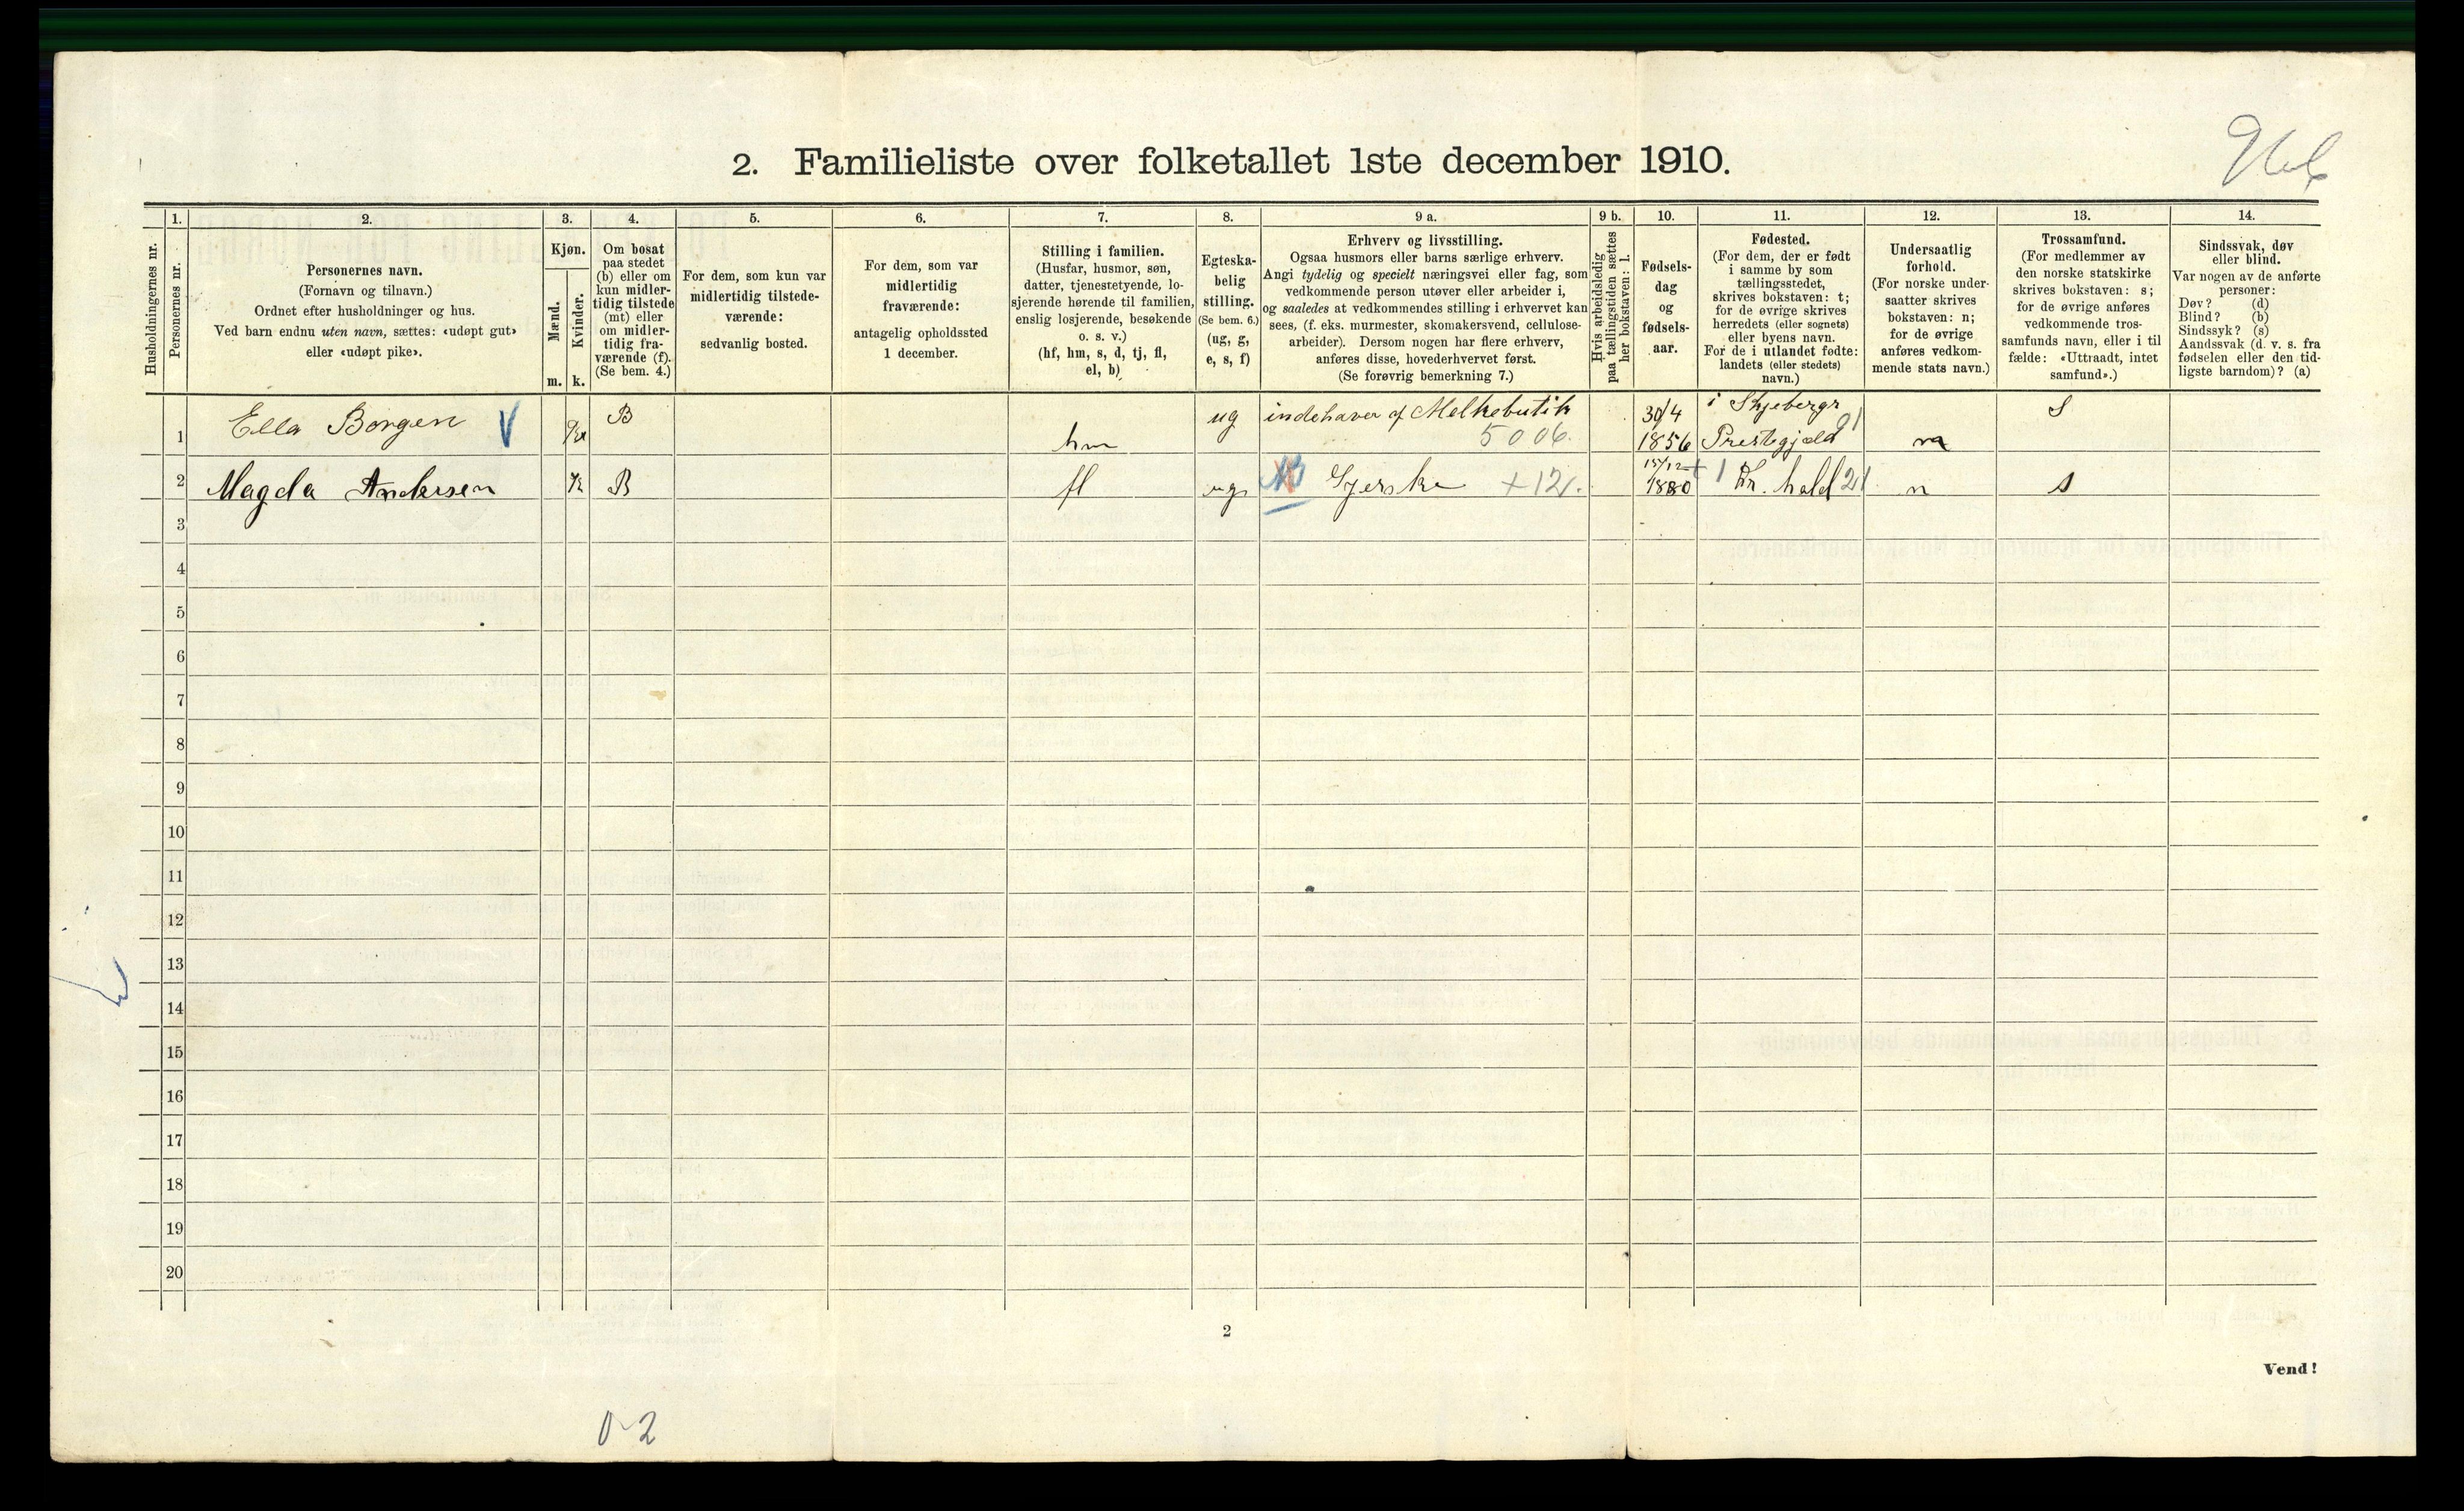 2. Familieliste over folketallet 1ste december 1910.
Husholdningernes nr.
1.
Personernes nr.
2.
Personernes navn.
(Fornavn og tilnavn.)
Ordnet efter husholdninger og hus.
Ved barn endnu uten navn, sættes: «udøpt gut»
eller «udøpt pike».
3.
Kjøn.
Mænd.
Kvinder.
m.
k.
4.
Om bosat
paa stedet
(b) eller om
kun midler-
tidig tilstede
(mt) eller
om midler-
tidig fra-
værende (f).
(Se bem. 4.)
5.
For dem, som kun var
midlertidig tilstede-
værende:
sedvanlig bosted.
6.
For dem, som var
midlertidig
fraværende:
antagelig opholdssted
1 december.
7.
Stilling i familien.
(Husfar, husmor, søn,
datter, tjenestetyende, lo-
sjerende hørende til familien,
enslig losjerende, besøkende
o. s. v.)
(hf, hm, s, d, tj, fl,
el, b)
8.
Egteska-
belig
stilling.
(Se bem. 6.)
(ug, g,
e, s, f)
9 a.
Erhverv og livsstilling.
Ogsaa husmors eller barns særlige erhverv.
Angi tydelig og specielt næringsvei eller fag, som
vedkommende person utøver eller arbeider i,
og saaledes at vedkommendes stilling i erhvervet kan
sees, (f. eks. murmester, skomakersvend, cellulose-
arbeider). Dersom nogen har flere erhverv,
anføres disse, hovederhvervet først.
(Se forøvrig bemerkning 7.)
9 b.
Hvis arbeidsledig
paa tællingstiden sættes
her bokstaven: l.
10.
Fødsels-
dag
og
fødsels-
aar.
11.
Fødested.
(For dem, der er født
i samme by som
tællingsstedet,
skrives bokstaven: t;
for de øvrige skrives
herredets (eller sognets)
eller byens navn.
For de i utlandet fødte:
landets (eller stedets)
navn.)
12.
Undersaatlig
forhold.
(For norske under-
saatter skrives
bokstaven: n;
for de øvrige
anføres vedkom-
mende stats navn.)
13.
Trossamfund.
(For medlemmer av
den norske statskirke
skrives bokstaven: s;
for de øvrige anføres
vedkommende tros-
samfunds navn, eller i til
fælde: «Uttraadt, intet
samfund».)
14.
Sindssvak, døv
eller blind.
Var nogen av de anførte
personer:
Døv? (d)
Blind? (b)
Sindssyk? (s)
Aandssvak (d. v. s. fra
fødselen eller den tid-
ligste barndom)? (a)
1 Ella Borgen V B hm ug indehaver af Melkebutik 5006. 30/4 1856 i Skjebergs Prestegjæld 21 n S
2 Magda Andersen k B fl ug Gjerske +12. 15/12 1880 Fr. hald 21 n s
3
4
5
6
7
8
9
10
11
12
13
14
15
16
17
18
19
20
2
Vend!
0-2